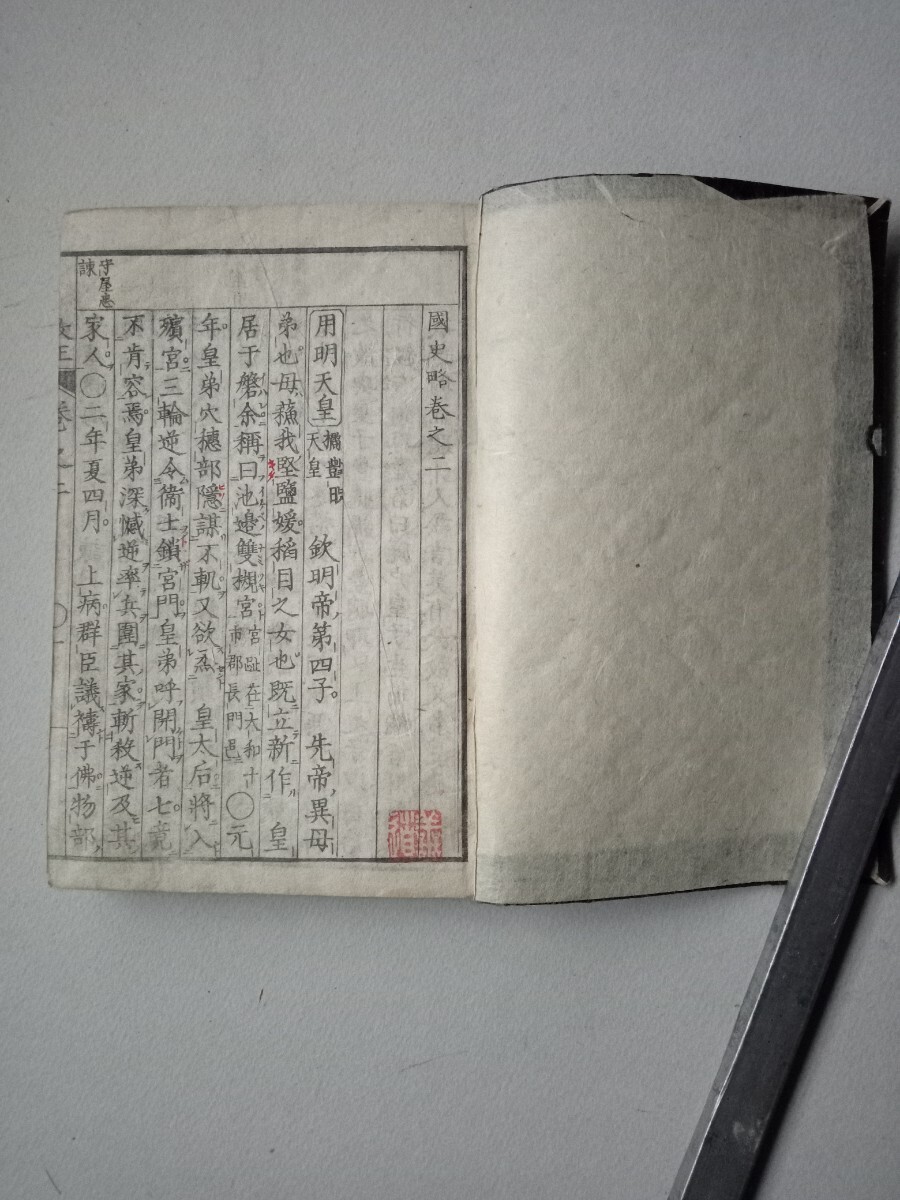 國史略卷之二
用明天皇 橘豐日天皇 欽明帝第四子。先帝異母
弟也母蘇我堅鹽媛稻目之女也既立新作 皇
居于磐余稱曰池邊雙槻宮 宮趾在大和十市郡長門邑 〇元
年皇弟穴穗部隱謀不軌又欲烝 皇太后將入
殯宮三輪逆令衞士鎖宮門皇弟呼開門者七竟
不肯容焉皇弟深憾逆率兵圍其家斬殺逆及其
家人〇二年夏四月。上病群臣議禱于佛物部
守屋
諫